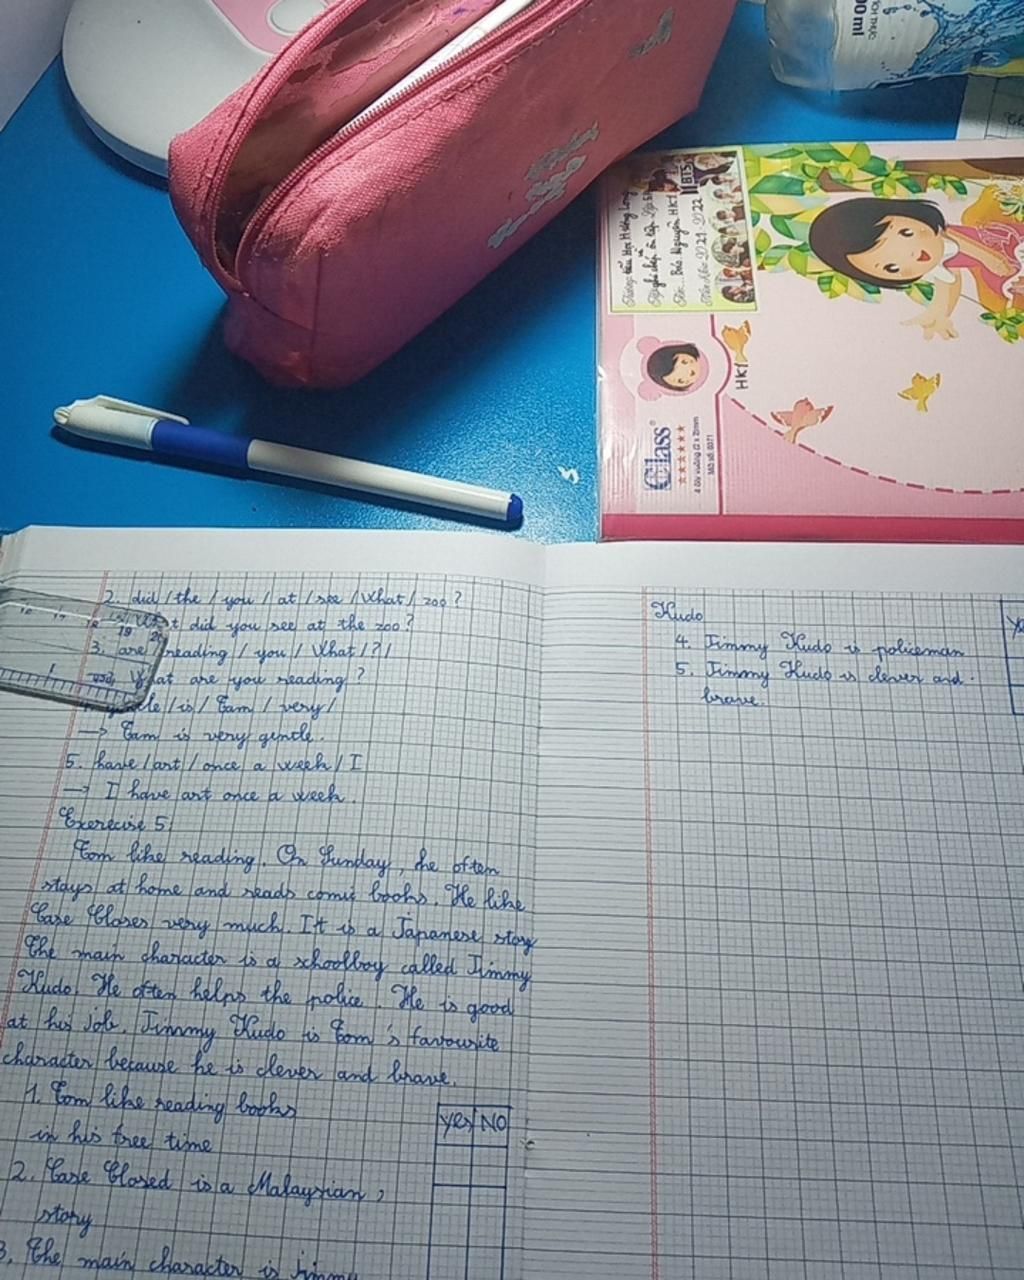 00 ml
BTS
HK1
Class
4 ôly vuông (2 x 2)mm
Mã số: 0371
18
19
2. did / the / you / at / see / What / zoo ?
What did you see at the zoo ?
3. are / reading / you / What / ? /
What are you reading ?
/ is / Tam / very /
→ Tam is very gentle.
5. have / art / once a week / I
→ I have art once a week.
Exercise 5:
Tom like reading. On Sunday, he often
stays at home and reads comic books. He like
Case Closes very much. It is a Japanese story
The main character is a schoolboy called Jimmy
Kudo. He often helps the police. He is good
at his job. Jimmy Kudo is Tom 's favourite
character because he is clever and brave.
1. Tom like reading books
in his free time
Yes NO
2. Case Closed is a Malaysian,
story
3. The main character is Jimmy
Kudo
4. Jimmy Kudo is policeman
5. Jimmy Kudo is clever and
brave.